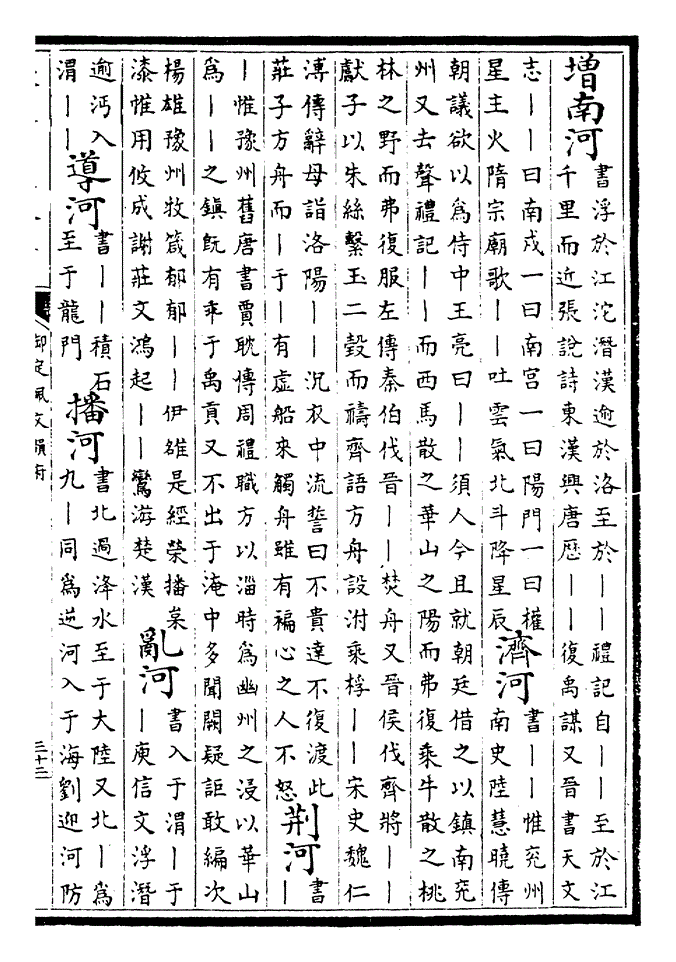 增南河
書浮於江沱潛漢逾於洛至於||禮記自||至於江
千里而近張說詩東漢興唐厯||復禹謀又晉書天文
志||曰南戍一曰南宫一曰陽門一曰權
星主火隋宗廟歌||吐雲氣北斗降星辰
濟河
書||惟兖州
南史陸慧曉傳
朝議欲以為侍中王亮曰||須人今且就朝廷借之以鎮南兖
州又去聲禮記||而西馬散之華山之陽而弗復乘牛散之桃
林之野而弗復服左傳秦伯伐晉||焚舟又晉侯伐齊將||
獻子以朱絲繫玉二瑴而禱齊語方舟設泭乘桴||宋史魏仁
溥傳辭母詣洛陽||沉衣中流誓曰不貴達不復渡此
莊子方舟而|于|有虚船來觸舟雖有褊心之人不怒
荆河
書
|
|惟豫州舊唐書賈耽傳周禮職方以淄時為幽州之浸以華山
為||之鎮既有乖于禹貢又不出于淹中多聞闕疑詎敢編次
楊雄豫州牧箴郁郁||伊雒是經榮播枲
漆惟用攸成謝莊文鴻起||鸞游楚漢
亂河
書入于渭|于
|庾信文浮潛
逾沔入
渭||
導河
書||積石
至于龍門
播河
書北過洚水至于大陸又北|為
九|同為逆河入于海劉迎河防
御定佩文韻府
三十三